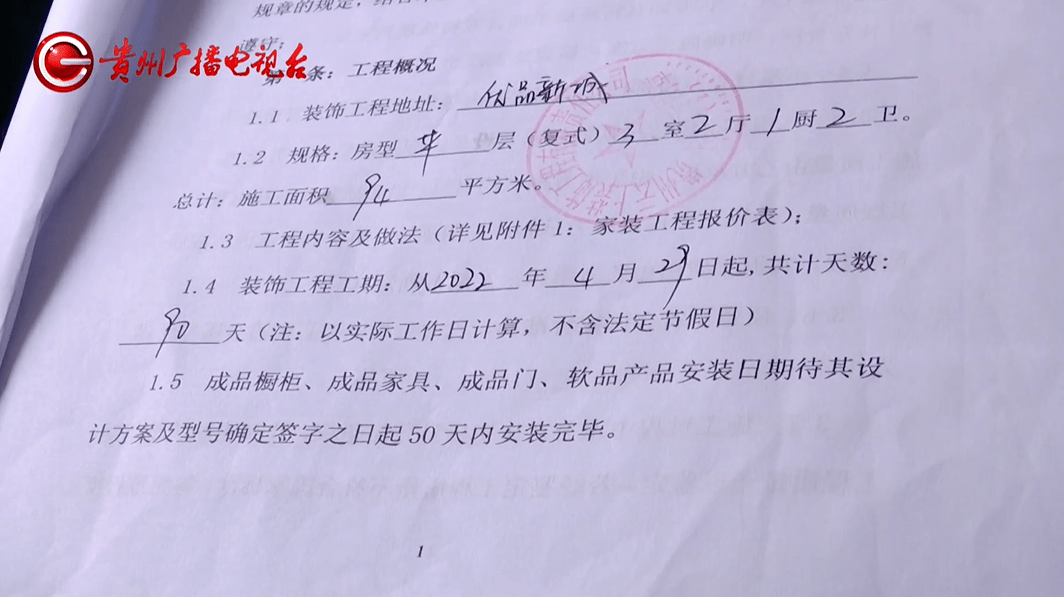 规章的规定，结合
遵守：
贵州广播电视台
第一条：工程概况
1.1 装饰工程地址：优品新城
1.2 规格：房型 单 层（复式）3 室 2 厅 1 厨 2 卫。
总计：施工面积 94 平方米。
1.3 工程内容及做法（详见附件1：家装工程报价表）；
1.4 装饰工程工期：从2022 年 4 月 29 日起，共计天数：
90 天（注：以实际工作日计算，不含法定节假日）
1.5 成品橱柜、成品家具、成品门、软品产品安装日期待其设
计方案及型号确定签字之日起50天内安装完毕。
1